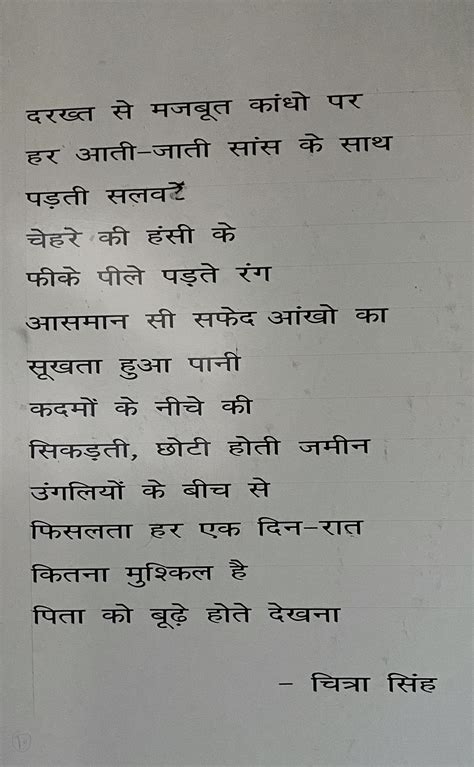 दरख्त से मजबूत कांधो पर
हर आती-जाती सांस के साथ
पड़ती सलवटें
चेहरे की हंसी के
फीके पीले पड़ते रंग
आसमान सी सफेद आंखो का
सूखता हुआ पानी
कदमों के नीचे की
सिकड़ती, छोटी होती जमीन
उंगलियों के बीच से
फिसलता हर एक दिन-रात
कितना मुश्किल है
पिता को बूढ़े होते देखना
- चित्रा सिंह